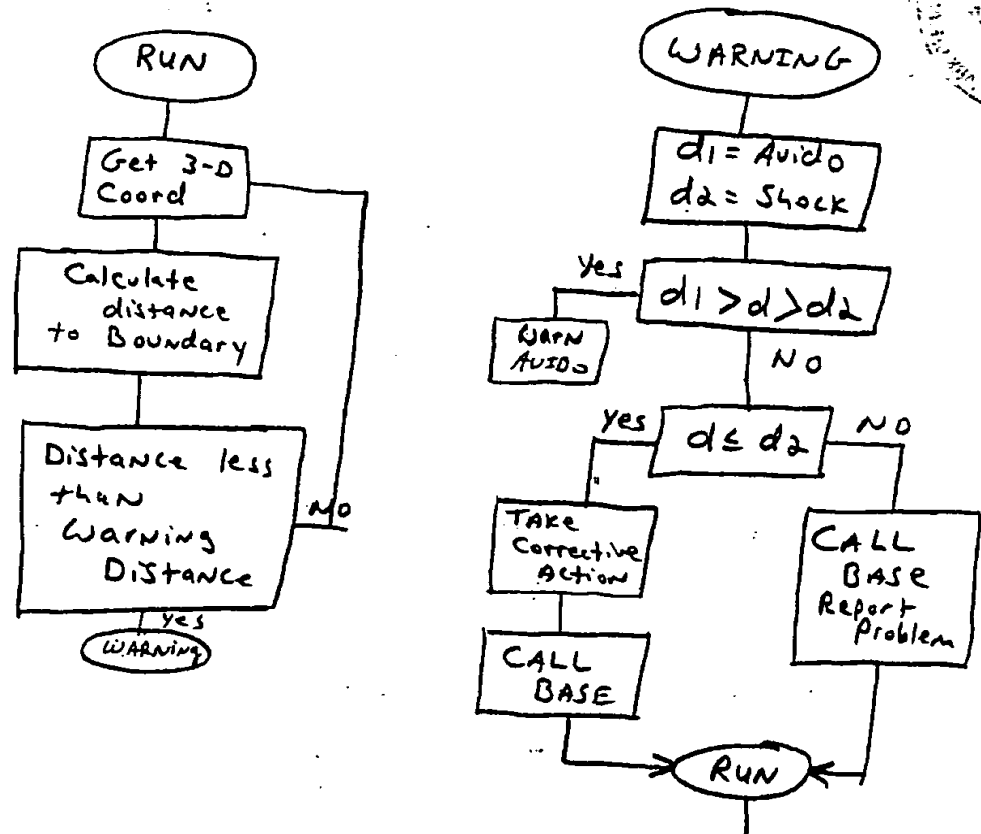 RUN
Get 3-D
Coord
Calculate
distance
to Boundary
Distance less
than
Warning
Distance
NO
Yes
WARNING
WARNING
d1 = Avido
d2 = Shock
Yes
d1 > d > d2
WARN
AVIDO
NO
Yes
d ≤ d2
NO
TAKE
Corrective
Action
CALL
BASE
CALL
BASE
Report
Problem
RUN